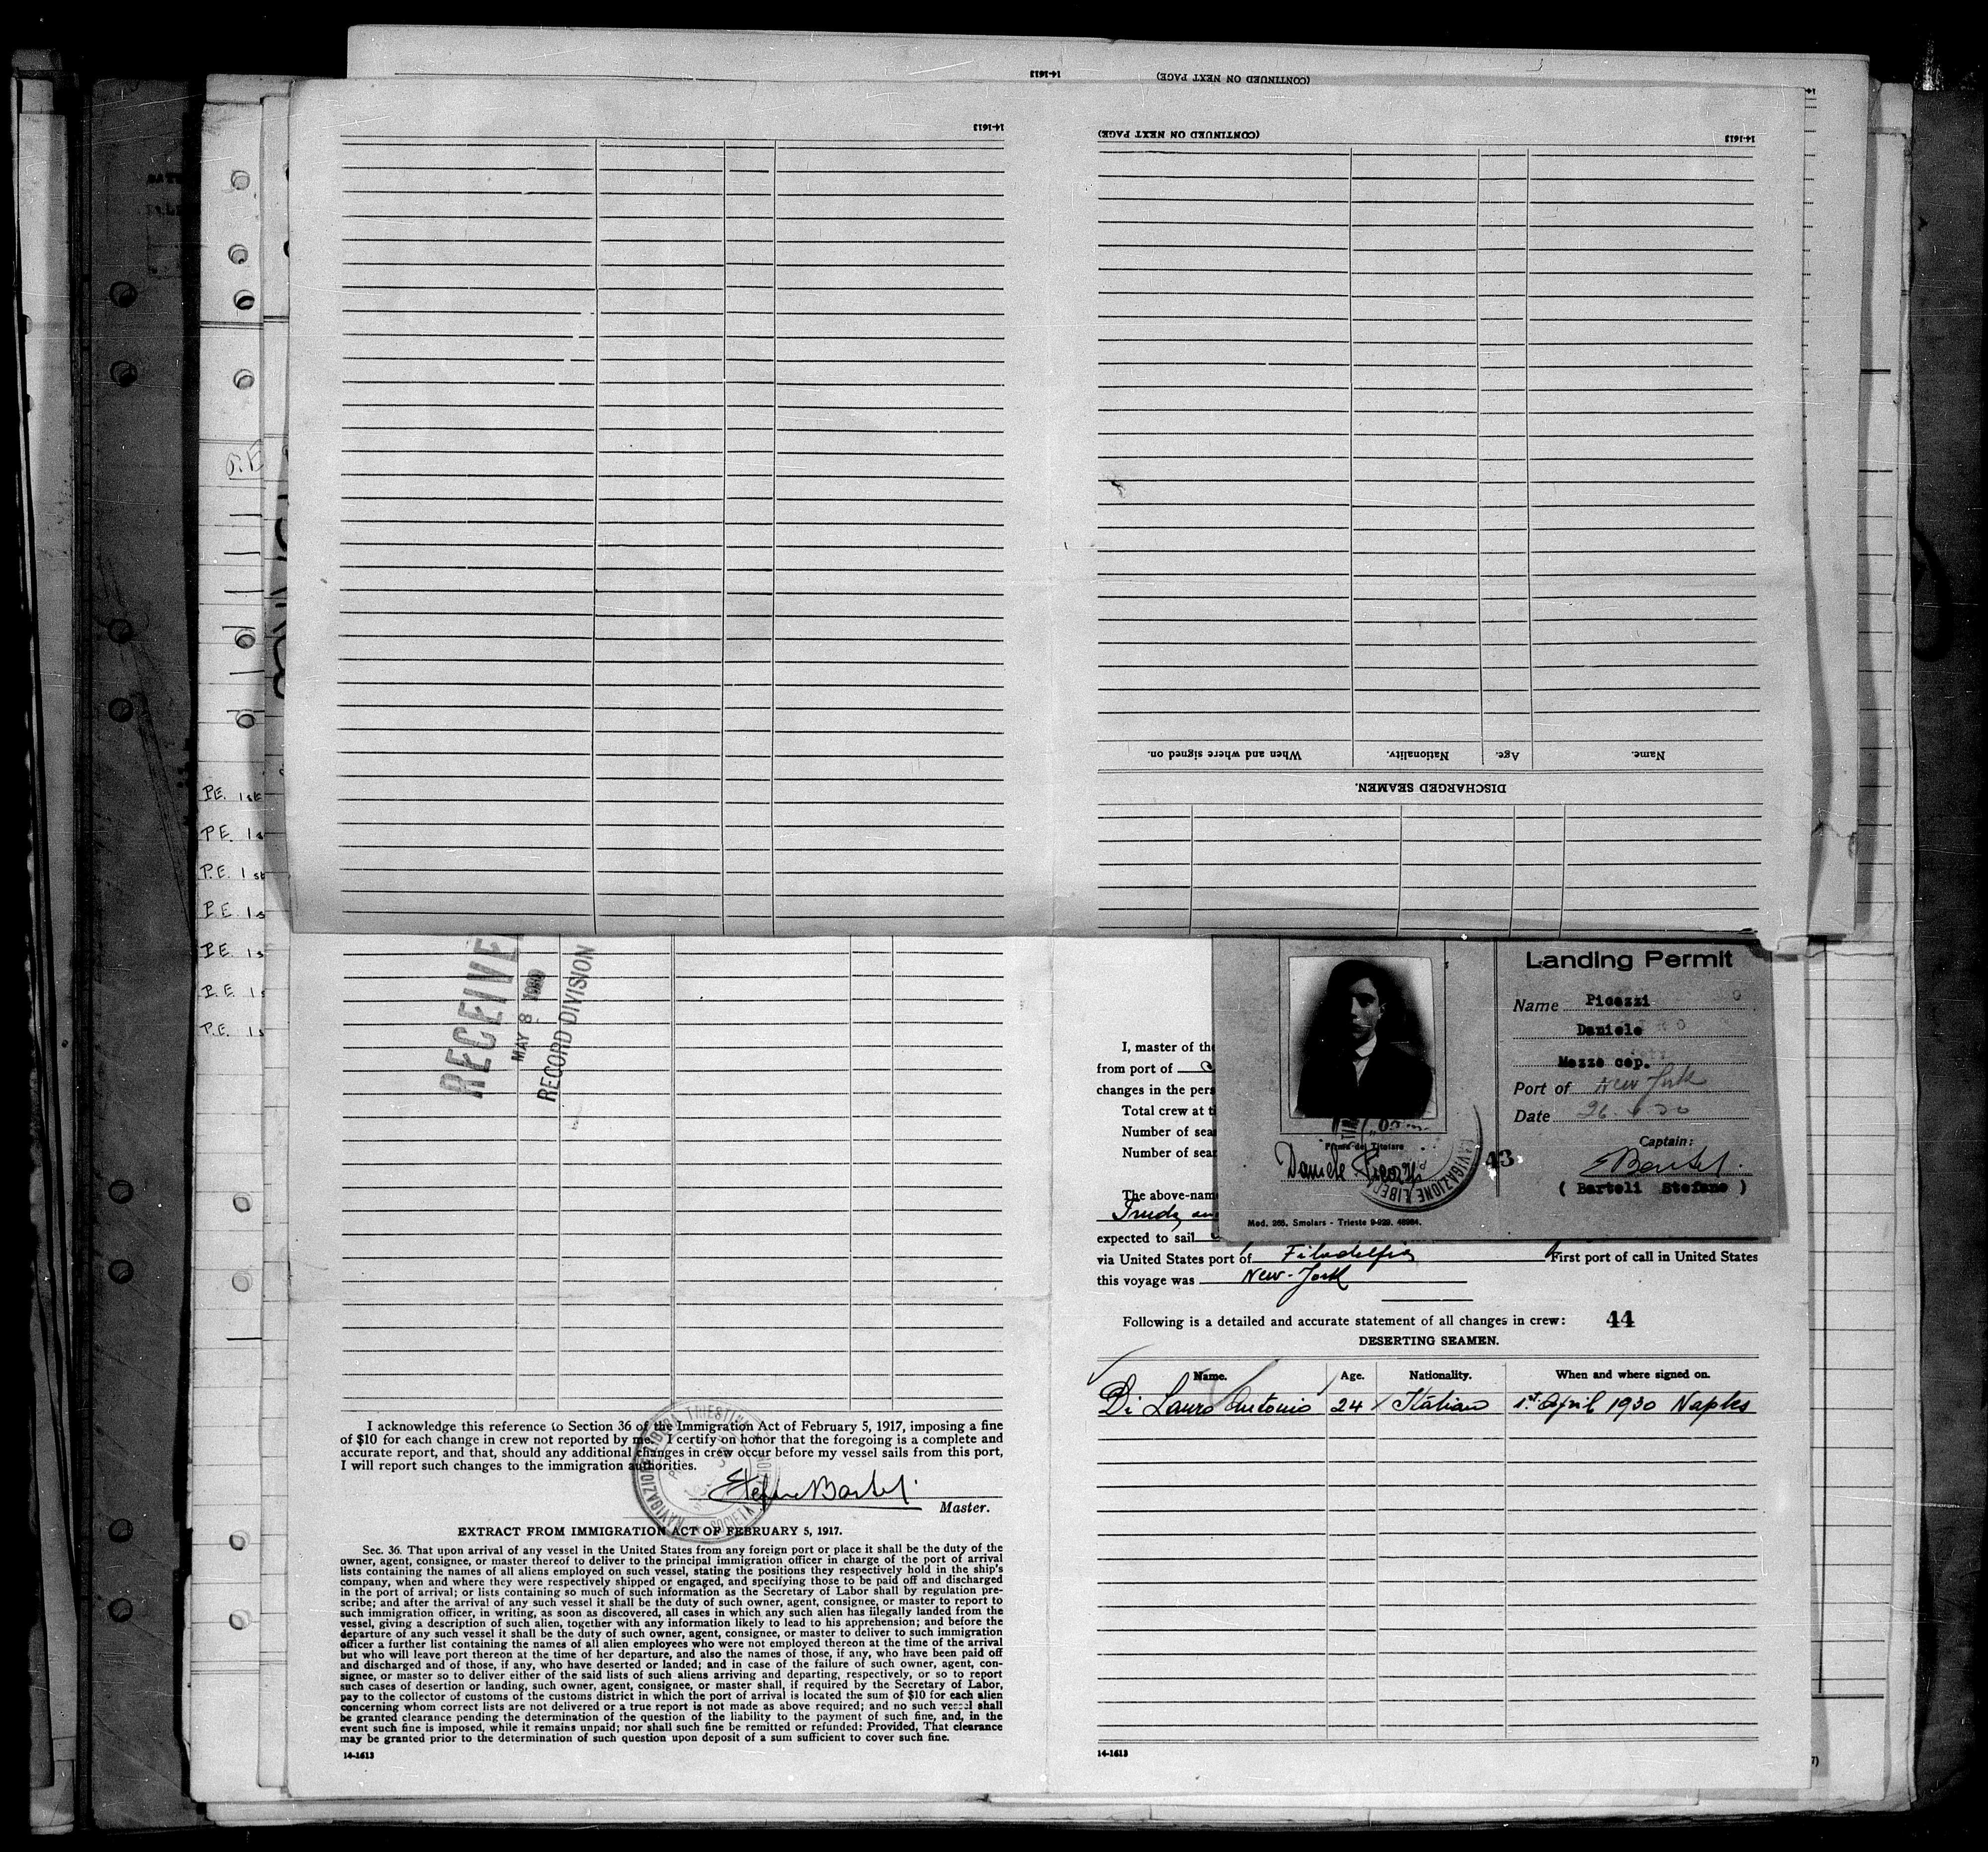 14-1613
(CONTINUED ON NEXT PAGE)
14-1613
(CONTINUED ON NEXT PAGE)
14-1613
When and where signed on.
Nationality.
Age.
Name.
DISCHARGED SEAMEN.
P.E. 1st
P.E. 1s
P.E. 1st
P.E. 1s
P.E. 1s
P.E. 1s
P.E. 1s
RECEIVE
MAY 8 1930
RECORD DIVISION
I acknowledge this reference to Section 36 of the Immigration Act of February 5, 1917, imposing a fine
of $10 for each change in crew not reported by me. I certify on honor that the foregoing is a complete and
accurate report, and that, should any additional changes in crew occur before my vessel sails from this port,
I will report such changes to the immigration authorities.
Master.
EXTRACT FROM IMMIGRATION ACT OF FEBRUARY 5, 1917.
Sec. 36. That upon arrival of any vessel in the United States from any foreign port or place it shall be the duty of the
owner, agent, consignee, or master thereof to deliver to the principal immigration officer in charge of the port of arrival
lists containing the names of all aliens employed on such vessel, stating the positions they respectively hold in the ship's
company, when and where they were respectively shipped or engaged, and specifying those to be paid off and discharged
in the port of arrival; or lists containing so much of such information as the Secretary of Labor shall by regulation pre-
scribe; and after the arrival of any such vessel it shall be the duty of such owner, agent, consignee, or master to report to
such immigration officer, in writing, as soon as discovered, all cases in which any such alien has illegally landed from the
vessel, giving a description of such alien, together with any information likely to lead to his apprehension; and before the
departure of any such vessel it shall be the duty of such owner, agent, consignee, or master to deliver to such immigration
officer a further list containing the names of all alien employees who were not employed thereon at the time of the arrival
but who will leave port thereon at the time of her departure, and also the names of those, if any, who have been paid off
and discharged and of those, if any, who have deserted or landed; and in case of the failure of such owner, agent, con-
signee, or master so to deliver either of the said lists of such aliens arriving and departing, respectively, or so to report
such cases of desertion or landing, such owner, agent, consignee, or master shall, if required by the Secretary of Labor,
pay to the collector of customs of the customs district in which the port of arrival is located the sum of $10 for each alien
concerning whom correct lists are not delivered or a true report is not made as above required; and no such vessel shall
be granted clearance pending the determination of the question of the liability to the payment of such fine, and, in the
event such fine is imposed, while it remains unpaid; nor shall such fine be remitted or refunded: Provided, That clearance
may be granted prior to the determination of such question upon deposit of a sum sufficient to cover such fine.
14-1613
Landing Permit
Name Picozzi
Daniele
Mozzo cop.
Port of New York
Date
Captain:
( Bartoli Stefano )
Firma del Titolare
Daniele Picozzi
43
Mod. 265. Smolars - Trieste 9-929. 48984.
I, master of the
from port of
changes in the pers
Total crew at ti
Number of sea
Number of sea
The above-nam
expected to sail
via United States port of Filadelfia First port of call in United States
this voyage was New-York
Following is a detailed and accurate statement of all changes in crew: 44
DESERTING SEAMEN.
Name. Age. Nationality. When and where signed on.
Di Lauro Antonio 24 Italian 1st April 1930 Naples
14-1613